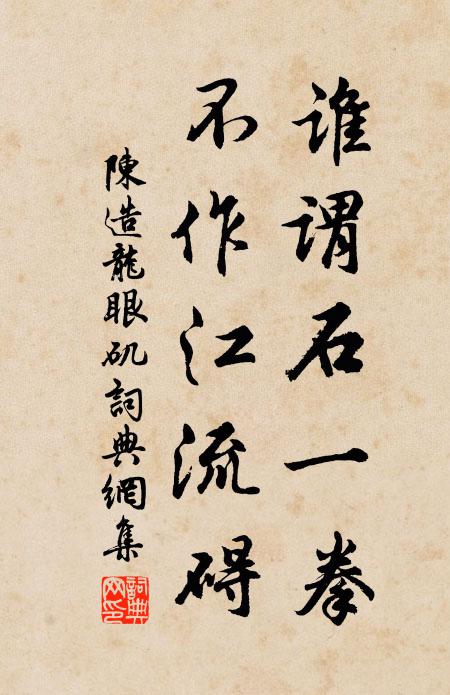 誰謂石一拳
不作江流碍
陳造龍眼矶詞典網集
詞典
网印